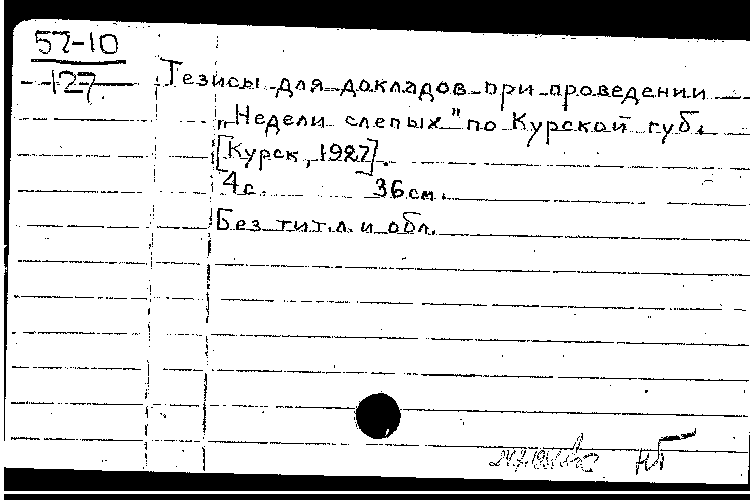 57-10
127
Тезисы для докладов при проведении
„Недели слепых" по Курской губ.
[Курск, 1927].
4с. 36см.
Без тит. л. и обл.
НБ